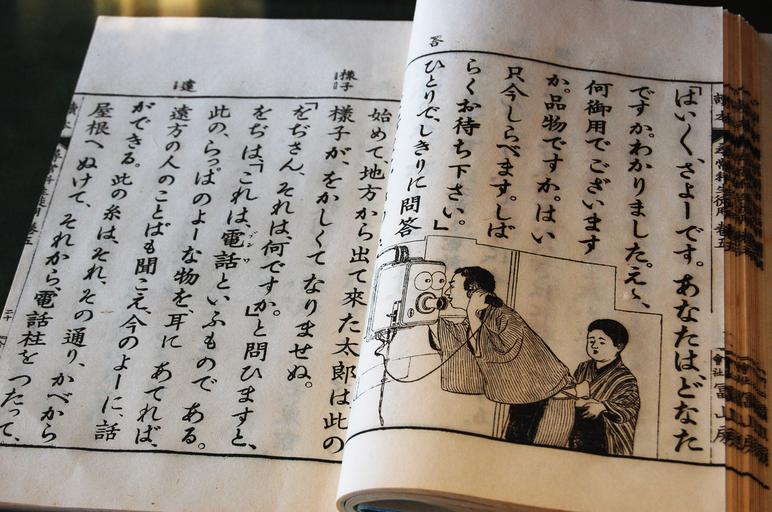 「はいく、さよーです。あなたは、どなた
ですか。わかりました。え、
何御用でございます
か。品物ですか。はい
只今しらべます。しば
らくお待ち下さい。」
ひとりで、しきりに問答
答
富山房
始めて、地方から出て來た太郎は此の
様子が、をかしくてなりませぬ。
「をぢさん、それは、何ですか。」と問ひますと、
をぢは、「これは、電話といふものである。
此の、らっぱのよーな物を、耳にあてれば、
遠方の人のことばも聞こえ、今のよーに、話
ができる。此の糸は、それ、その通り、かべから
屋根へぬけて、それから、電話柱をつたって、
様子